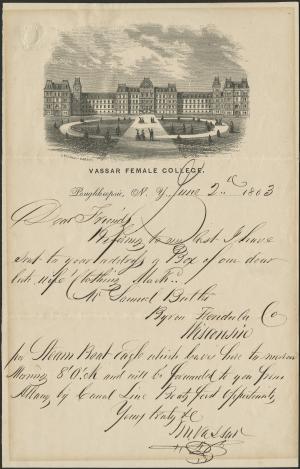 VASSAR FEMALE COLLEGE.
Poughkeepsie, N. Y. June 2nd 1863
Dear Friend,
Referring to my last I have
sent to your address a Box of our dear
late wife Clothing Mark'd
Mr Samuel Butler
Byron Co
Wisconsin
per Steam Boat Eagle which leave here to morrow
Morning 8 O.Ck and will be forwarded to you from
Albany by Canal Line Boats first Opportunity
Yours Truly &c
M Vassar